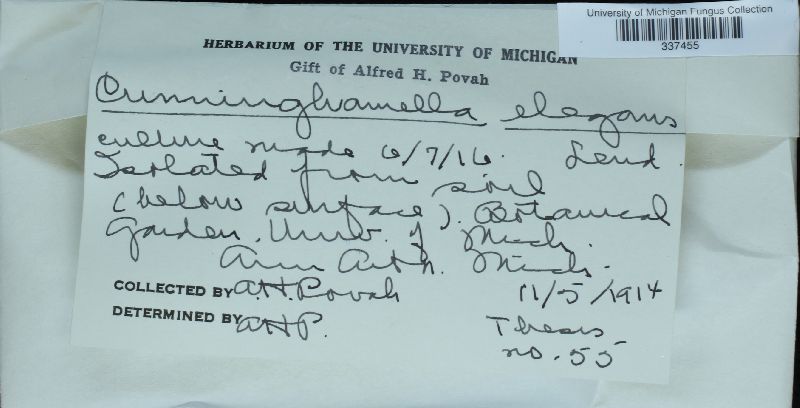 University of Michigan Fungus Collection
337455
HERBARIUM OF THE UNIVERSITY OF MICHIGAN
Gift of Alfred H. Povah
Cunninghamella elegans
culture made 6/7/16. Lend.
Isolated from soil
(below surface). Botanical
Garden, Univ. of Mich.
Ann Arbor. Mich.
COLLECTED BY A.H. Povah 11/5/1914
DETERMINED BY AHP. Thesis
no. 55